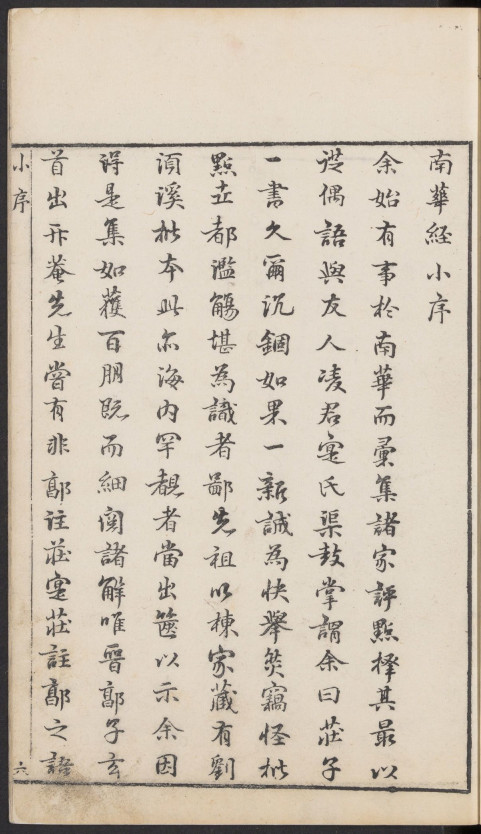 南華經小序
余始有事於南華而彙集諸家評點擇其最以
從偶語與友人凌君寔氏渠鼓掌謂余曰莊子
一書久爾沉錮如果一新誠為快舉矣竊怪批
點立都濫觴堪為識者鄙先祖以棟家藏有劉
湏溪批本此亦海內罕覯者當出篋以示余因
得是集如獲百朋既而細閱諸解唯晉郭子玄
首出升菴先生嘗有非郭註莊寔莊註郭之語
小序
六